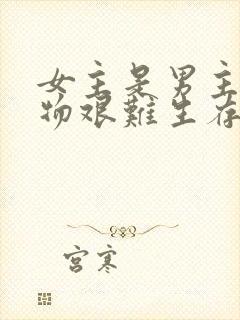 女主是男主
物艰难生存
宫寒